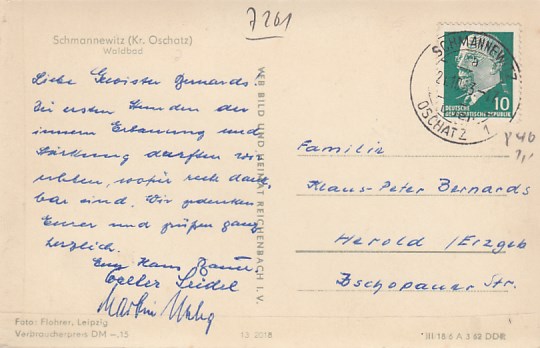 7261
Schmannewitz (Kr. Oschatz)
Waldbad
Liebe Geswister Bernards!
In ersten Stunden der
innern Erbauung und
Stärkung durften wir
erleben, wofür wir recht dank-
bar sind. Wir gedenken
Eurer und grüßen ganz
herzlich.
Hans
Seidel
Martin
Foto: Flohrer, Leipzig
Verbraucherpreis DM –.15
VEB BILD UND HEIMAT REICHENBACH I. V.
13 2018
SCHMANNEWITZ
OSCHATZ 1
DEUTSCHE
DEMOKRATISCHE REPUBLIK
10
Familie
Klaus-Peter Bernards
Herold /Erzgeb
Zschopauer Str.
III 18 6 A 3 62 DDR